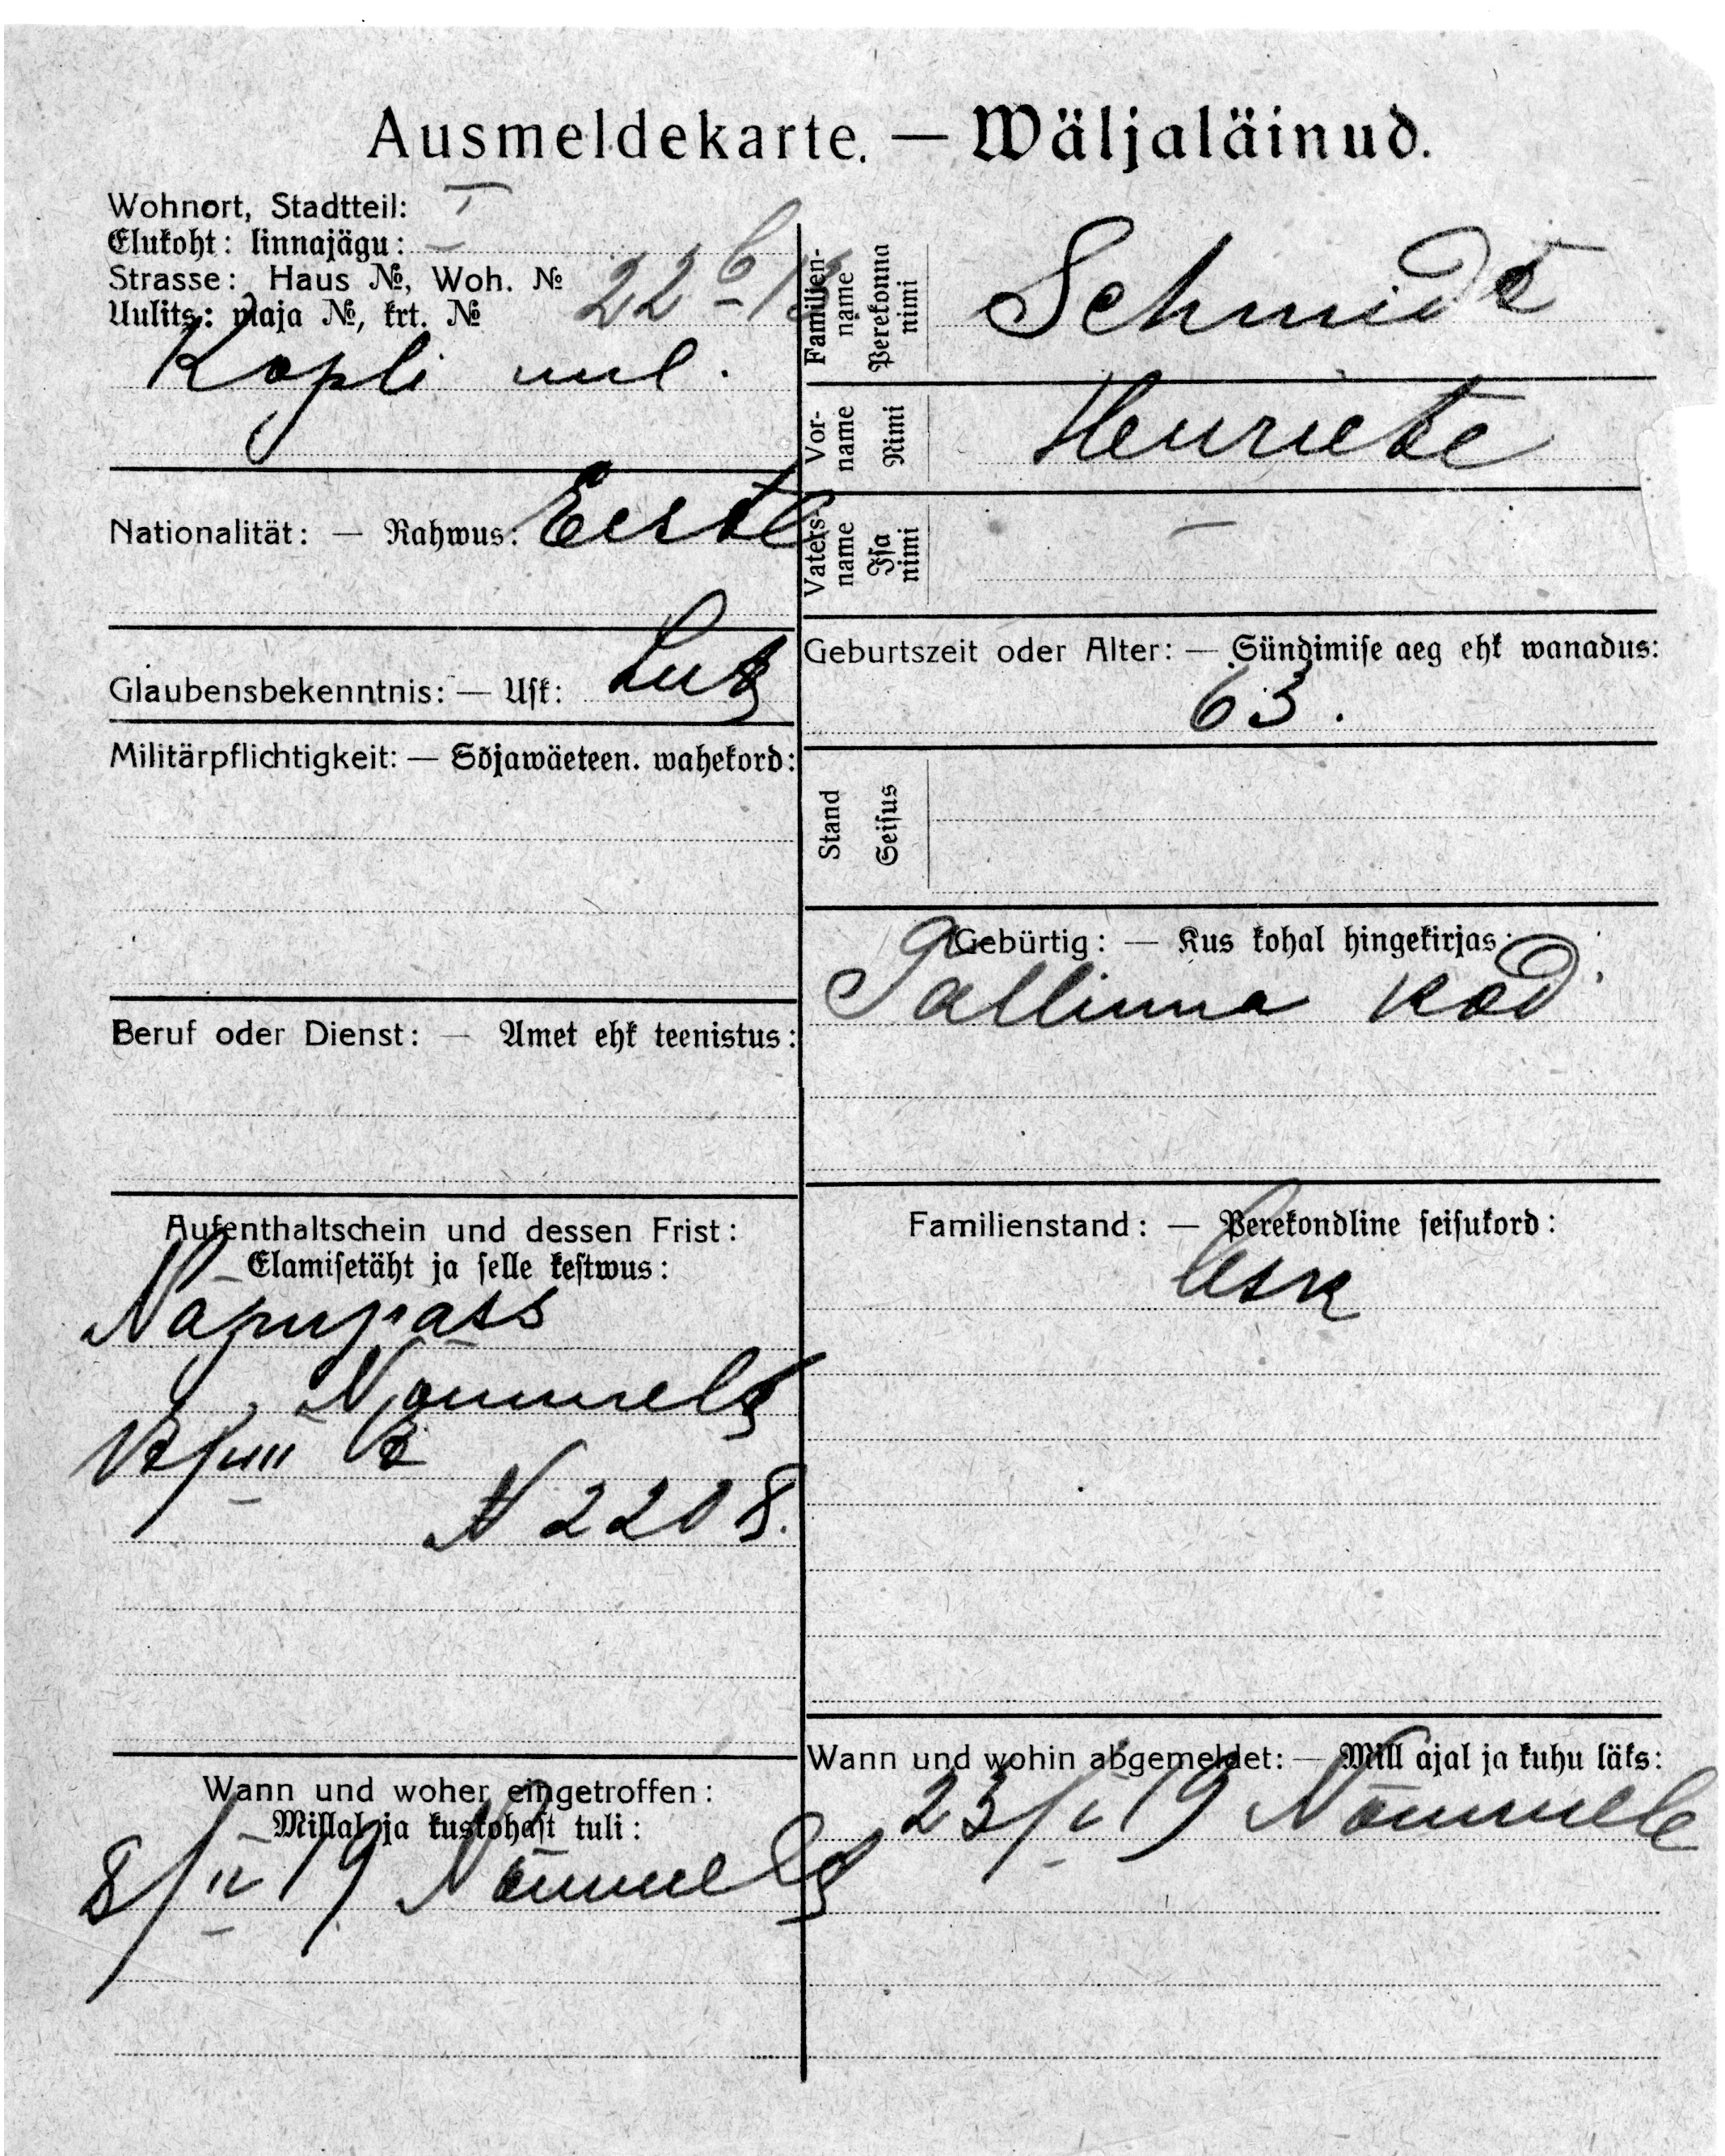 Ausmeldekarte. — Wäljaläinud.
Wohnort, Stadtteil: I
Elukoht: linnajägu:
Strasse: Haus №, Woh. № 22 b/13
Uulits: maja №, krt. №
Kopli uul.
Nationalität: — Rahwus: Eestl
Glaubensbekenntnis: — Usk: Lut
Militärpflichtigkeit: — Sõjawäeteen. wahekord:
Beruf oder Dienst: — Amet ehk teenistus:
Aufenthaltschein und dessen Frist:
Elamisetäht ja selle kestwus:
Napupass
Nõmmelt
N 2208.
Wann und woher eingetroffen:
Millal ja kuskohast tuli:
8/IV 19 Nõmmelt
Familien-name Perekonna nimi Schmidt
Vor-name Nimi Henriete
Vaters-name Isa nimi —
Geburtszeit oder Alter: — Sündimise aeg ehk wanadus:
63.
Stand Seisus
Gebürtig: — Kus kohal hingekirjas:
Tallinna kod.
Familienstand: — Perekondline seisukord:
Lesk
Wann und wohin abgemeldet: — Mill ajal ja kuhu läks:
23/V 19 Nõmmele